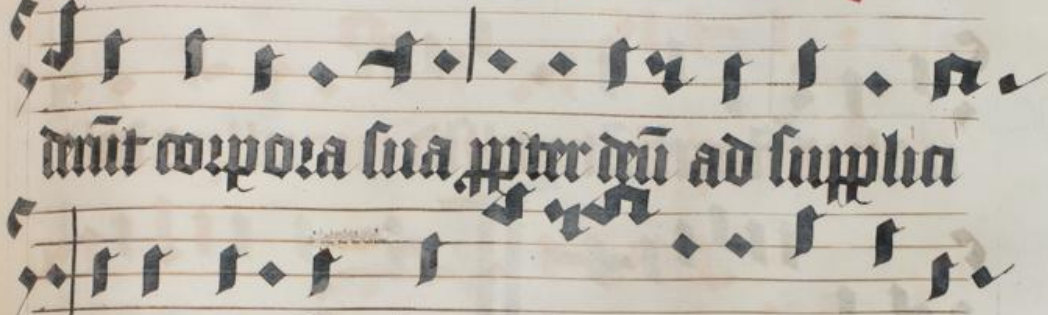 derūt corpora sua ꝓpter deū ad supplici